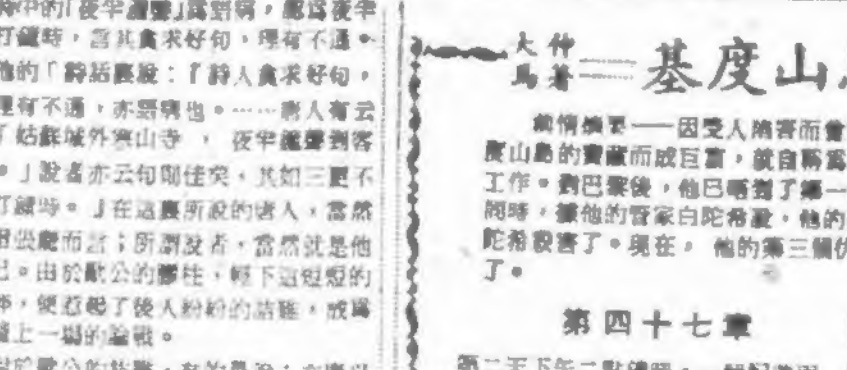 詩中的「夜半鐘聲」為語病，認為夜半
打鐘時，言其貪求好句，理有不通。
他的「詩話裏說：『詩人貪求好句，
理有不通，亦語病也。……唐人有云
「姑蘇城外寒山寺，夜半鐘聲到客
。」說者亦云句則佳矣，其如三更不
打鐘時。』在這裏所說的唐人，當然
張繼而言；所謂說者，當然就是他
已。由於歐公的膠柱，輕下這短短的
，便惹起了後人紛紛的詰難，
上一場的論戰。
大仲馬著
基度山
劇情摘要——因受人陷害而
度山島的寶藏而成巨富，就自稱為
工作。到巴黎後，他已
同時，據他的管家白陀希說，他的
陀希殺害了。現在，他的第三個仇
了。
第四十七章
第二天下午二點鐘時，